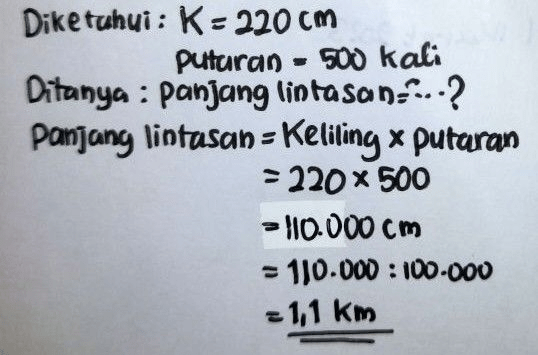 Diketahui : K = 220 cm
putaran = 500 kali
Ditanya : panjang lintasan = ... ?
Panjang lintasan = Keliling x putaran
= 220 x 500
= 110.000 cm
= 110.000 : 100.000
= 1,1 km